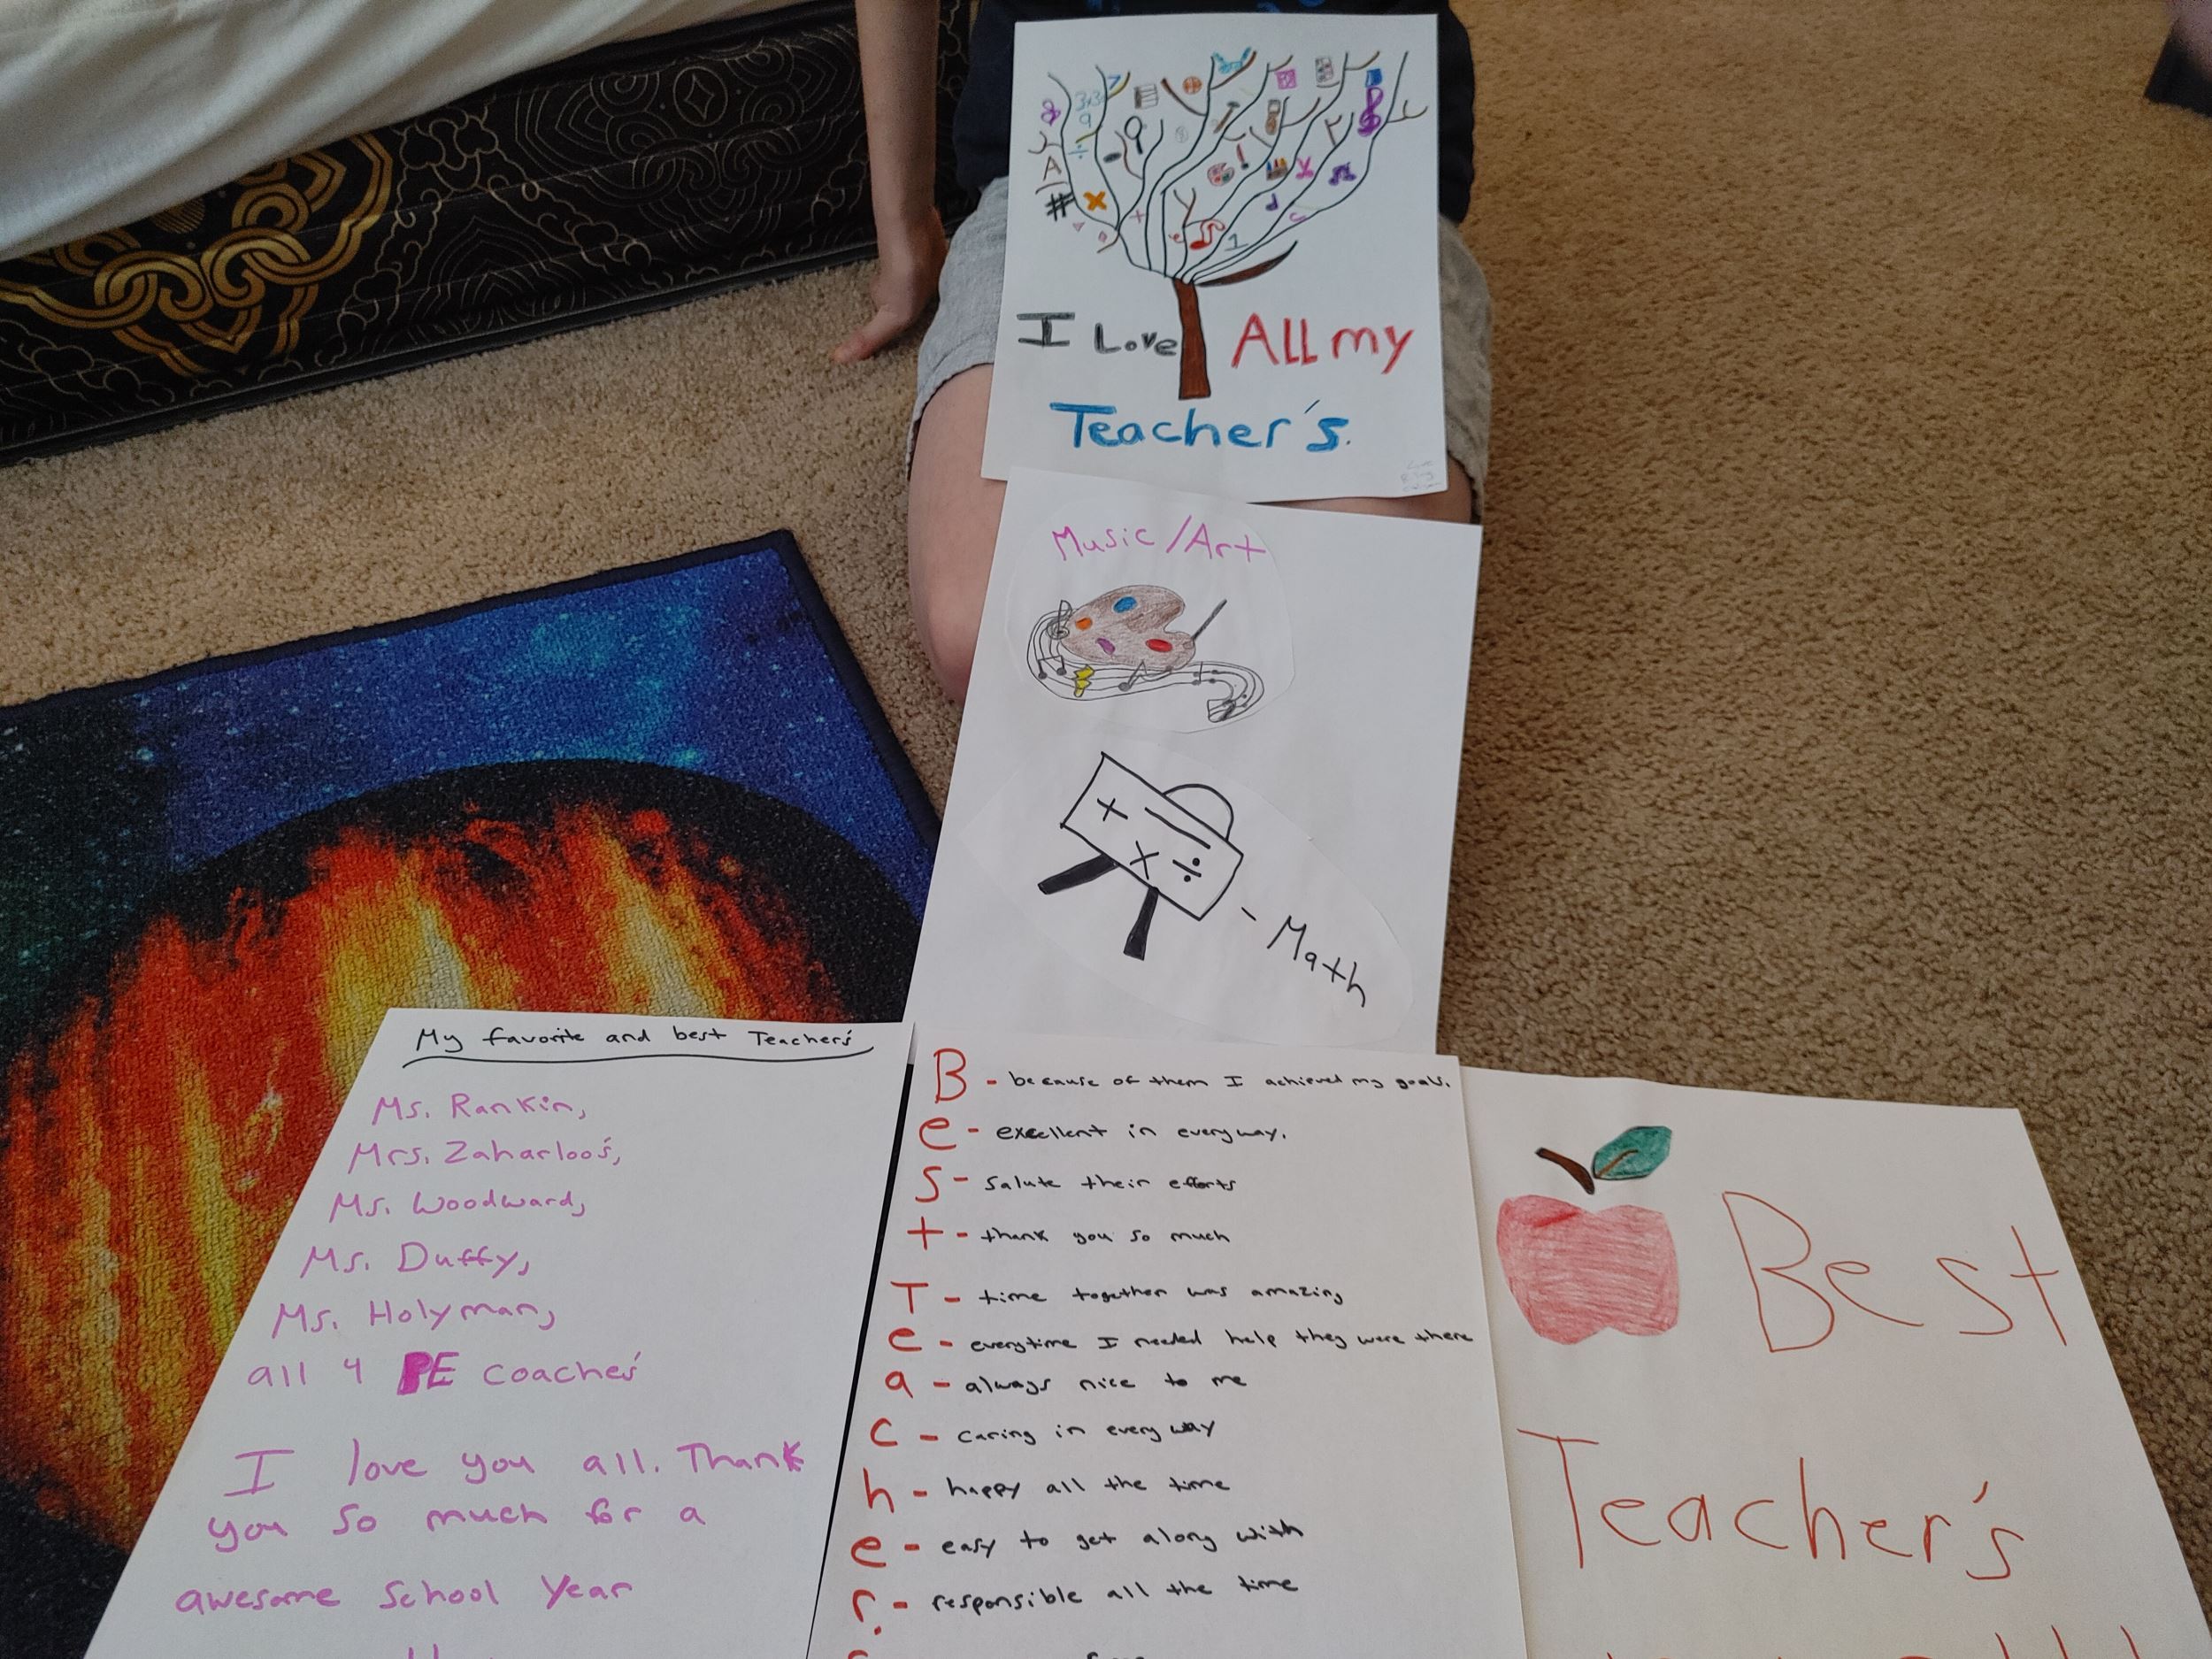 I Love All my
Teacher's.
Music/Art
- Math
My favorite and best Teacher's
Ms. Rankin,
Mrs. Zaharloo's,
Ms. Woodward,
Ms. Duffy,
Ms. Holyman,
all 4 PE coaches'
I love you all. Thank
you so much for a
awesome School Year
B - because of them I achieved my goals.
e - excellent in every way.
S - Salute their efforts
t - thank you so much
T - time together was amazing
e - everytime I needed help they were there
a - always nice to me
c - caring in every way
h - happy all the time
e - easy to get along with
r - responsible all the time
Best
Teacher's